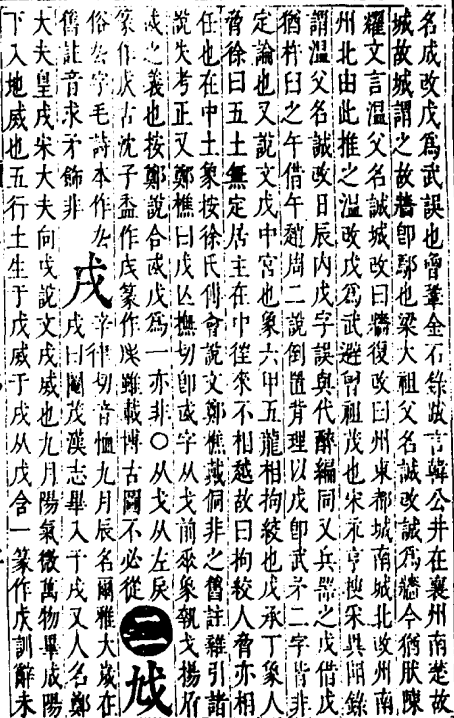 名成改戊爲武誤也曾鞏金石錄跋言韓公井在襄州南楚故
城故城謂之故牆卽鄢也梁大祖父名誠改誠爲牆今猶然陳
耀文言溫父名誠城改曰牆復改曰州東都城南城北改州南
州北由此推之溫改戊爲武避曾祖茂也宋永亨搜采異聞錄
謂溫父名誠改日辰內戊字誤與代醉編同又兵器之戊借戊
猶杵臼之午借午趙周二說倒置背理以戊卽武矛二字皆非
定論也又說文戊中宮也象六甲五龍相拘絞也戊承丁象人
脅徐曰五土無定居主在中徃來不相越故曰拘絞人脅亦相
任也在中土象按徐氏傅會說文鄭樵戴侗非之舊註雜引諸
說失考正又鄭樵曰戊亾撫切卽戚字从戈前垂象執戈揚斧
戉之義也按鄭說合戚戊爲一亦非○从戈从左戾
篆作戊古沈子盉作戊篆作雖載博古圖不必從
二 𢦏
俗厺字毛詩本作厺
舊註音求矛飾非
戌 辛律切音恤九月辰名爾雅大歲在
戌曰閹茂漢志畢入于戌又人名鄭
大夫皇戌宋大夫向戌說文戌威也九月陽氣微萬物畢成陽
下入地威也五行土生于戊威于戌从戊含一篆作戌訓辭未